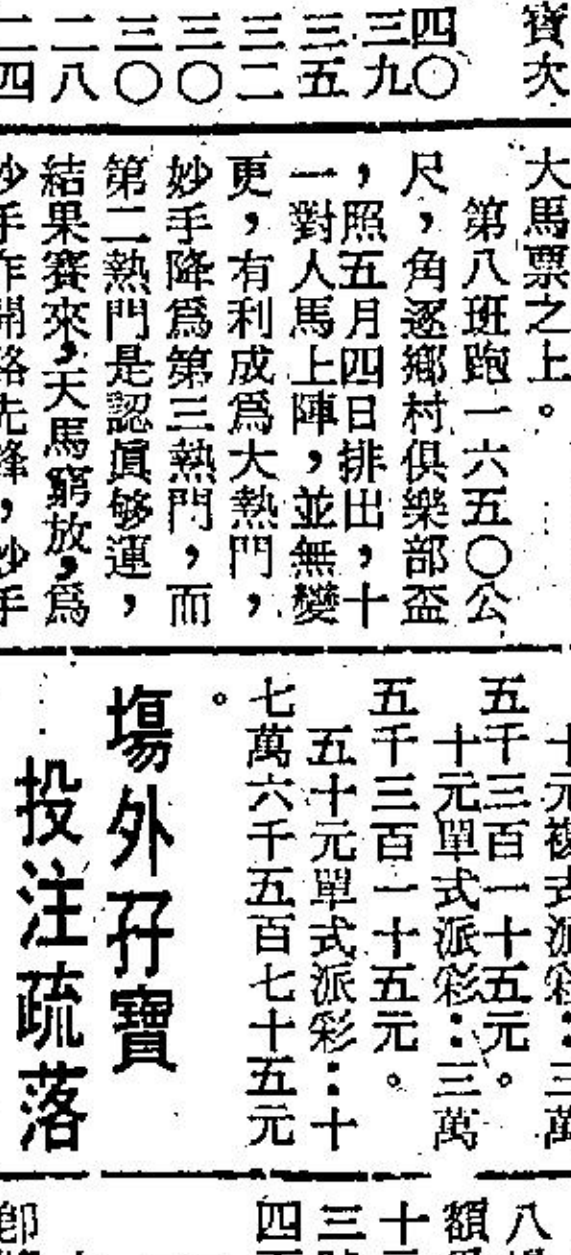 寶次
四〇
三九
三五
三二
三〇
三〇
二八
二四
大馬票之上。
第八班跑一六五〇公
尺，角逐鄉村俱樂部盃
，照五月四日排出，十
一對人馬上陣，並無變
更，有利成爲大熱門，
妙手降爲第三熱門，而
第二熱門是認眞够運，
結果賽來，天馬窮放，爲
妙手作開路先鋒，妙手
十元複式派彩：三萬
五千三百一十五元。
十元單式派彩：三萬
五千三百一十五元。
五十元單式派彩：十
七萬六千五百七十五元
。
塲外孖寶
投注疏落
八
額
十
三
四